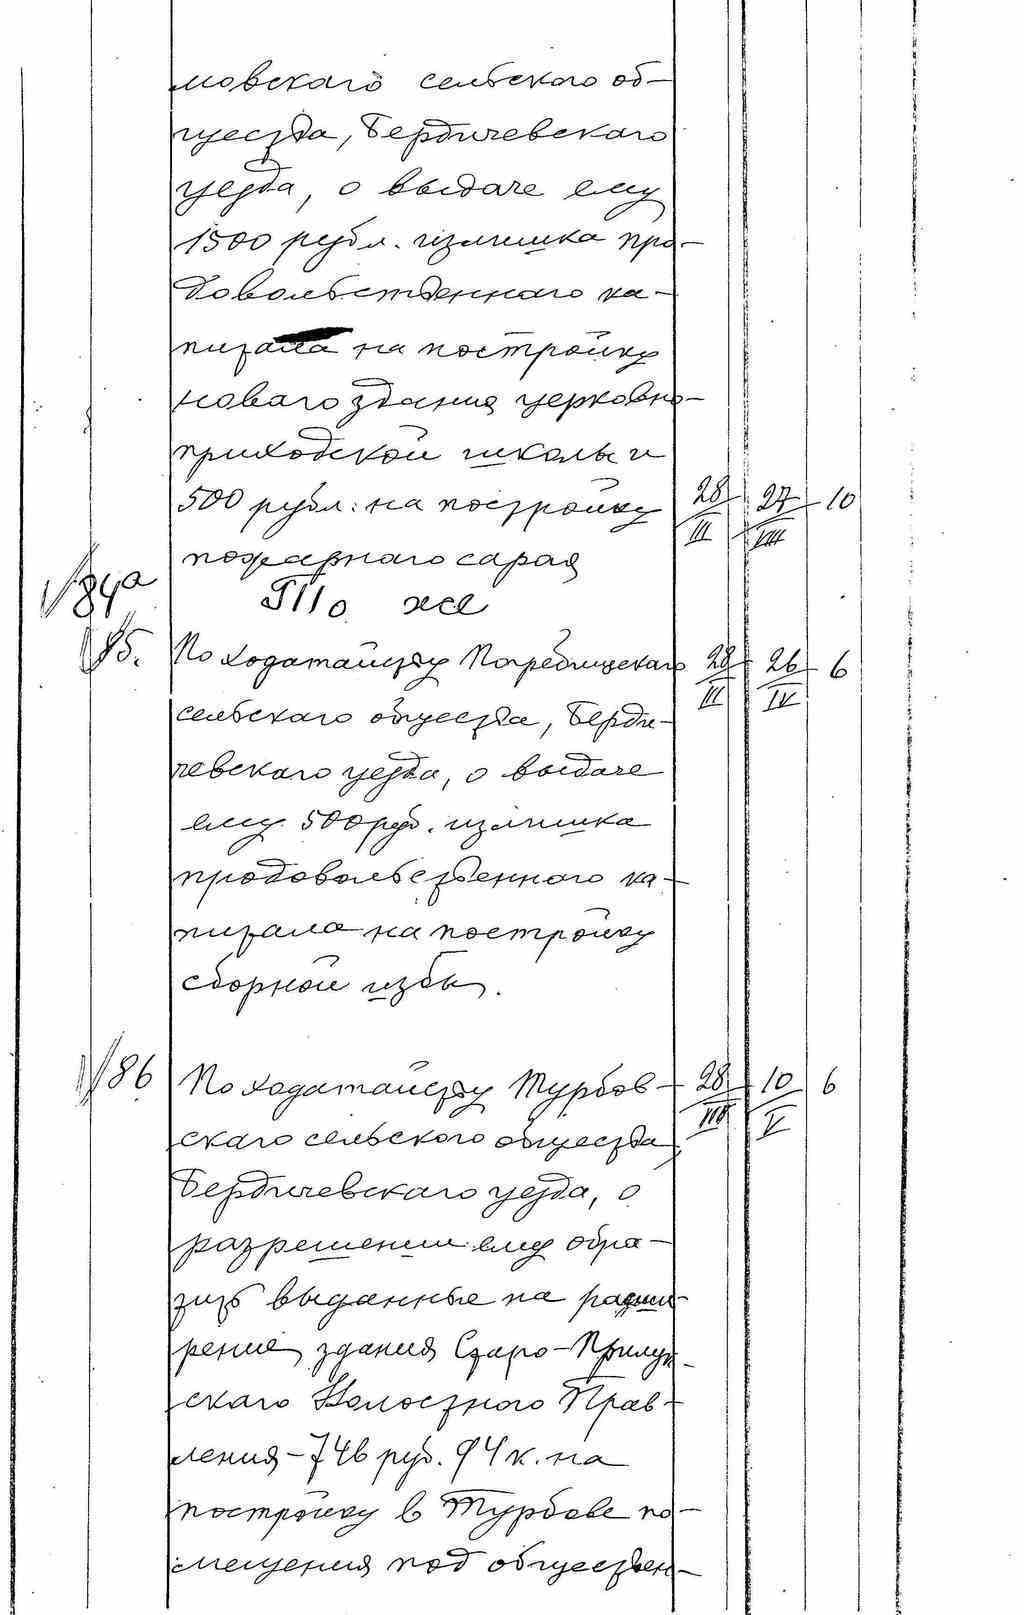 мовскаго сельскаго об-
щества, Бердичевскаго
уезда, о выдаче ему
1500 рубл. излишка про-
довольственнаго ка-
питала на постройку
новаго здания церковно-
приходской школы и
500 рубл. на постройку 28/III 27/VIII 10
пожарнаго сарая
84а То же
85. По ходатайству Погребищскаго 28/III 26/IV 6
сельскаго общества, Берди-
чевскаго уезда, о выдаче
ему 500 руб. излишка
продовольственнаго ка-
питала на постройку
сборной избы.
86 По ходатайству Турбов- 28/III 10/V 6
скаго сельского общества,
Бердичевскаго уезда, о
разрешении ему обра-
тить выданные на расши-
рение здания Старо-Прилук-
скаго Волостного Прав-
ления - 746 руб. 94 к. на
постройку в Турбове по-
мещения под обществен-